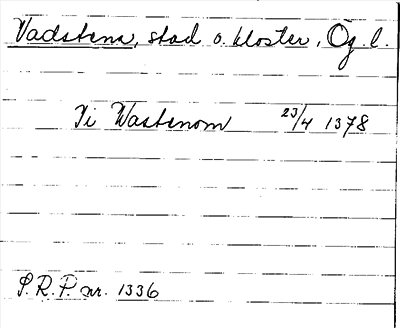 Vadstena, stad o. kloster, Ög. l.
Ti Wastenom 23/4 1378
P.R.P. nr. 1336